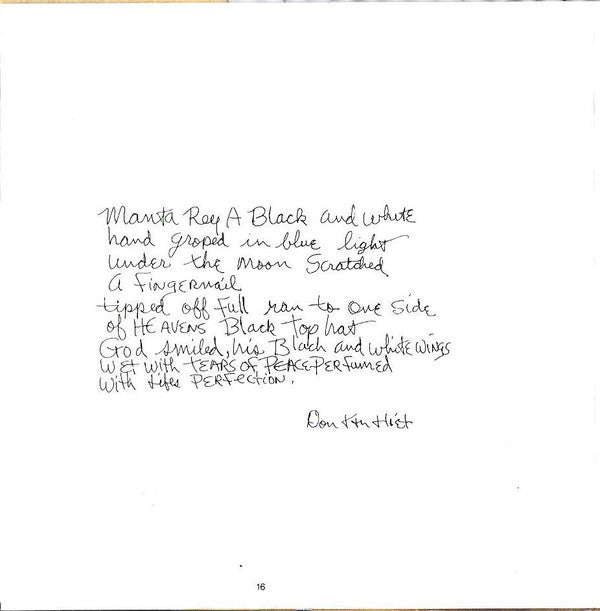 Manta Rey A Black and white
hand groped in blue light
under the moon Scratched
a FingerNail
tipped off Full ran to one Side
of HEAVENS Black Top hat
God smiled, his Black and white wings
WET with TEARS OF PEACE PERFumed
with Lifes PERFection.
Don Van Vliet
16